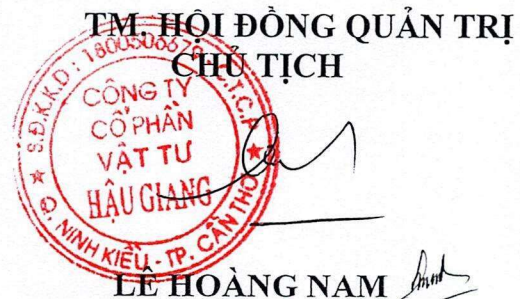 TM. HỘI ĐỒNG QUẢN TRỊ
CHỦ TỊCH
S.Đ.K.K.D: 1800506679 - C.T.C.P
CÔNG TY
CỔ PHẦN
VẬT TƯ
HẬU GIANG
Q. NINH KIỀU - TP. CẦN THƠ
LÊ HOÀNG NAM